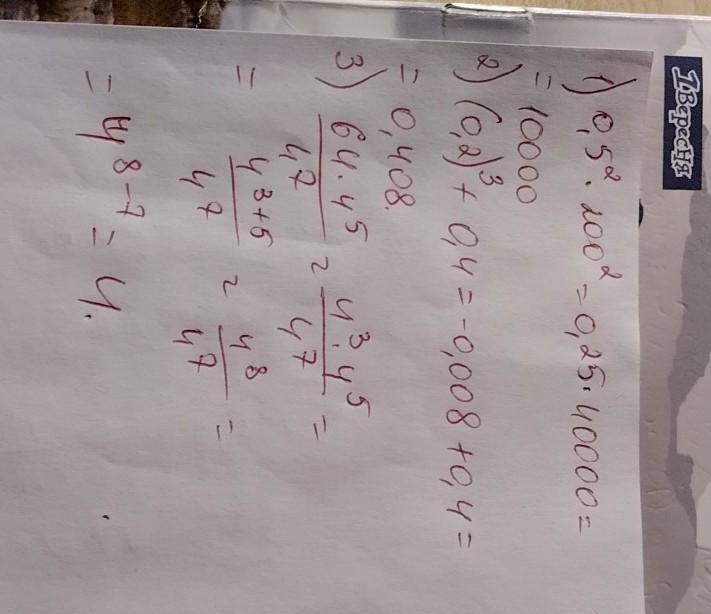 Твересня
1) 0,5² · 200² = 0,25 · 40000 =
= 10000
2) (0,2)³ + 0,4 = -0,008 + 0,4 =
= 0,408.
3) \frac{64 \cdot 4^5}{4^7} = \frac{4^3 \cdot 4^5}{4^7} =
= \frac{4^{3+5}}{4^7} = \frac{4^8}{4^7} =
= 4^{8-7} = 4.